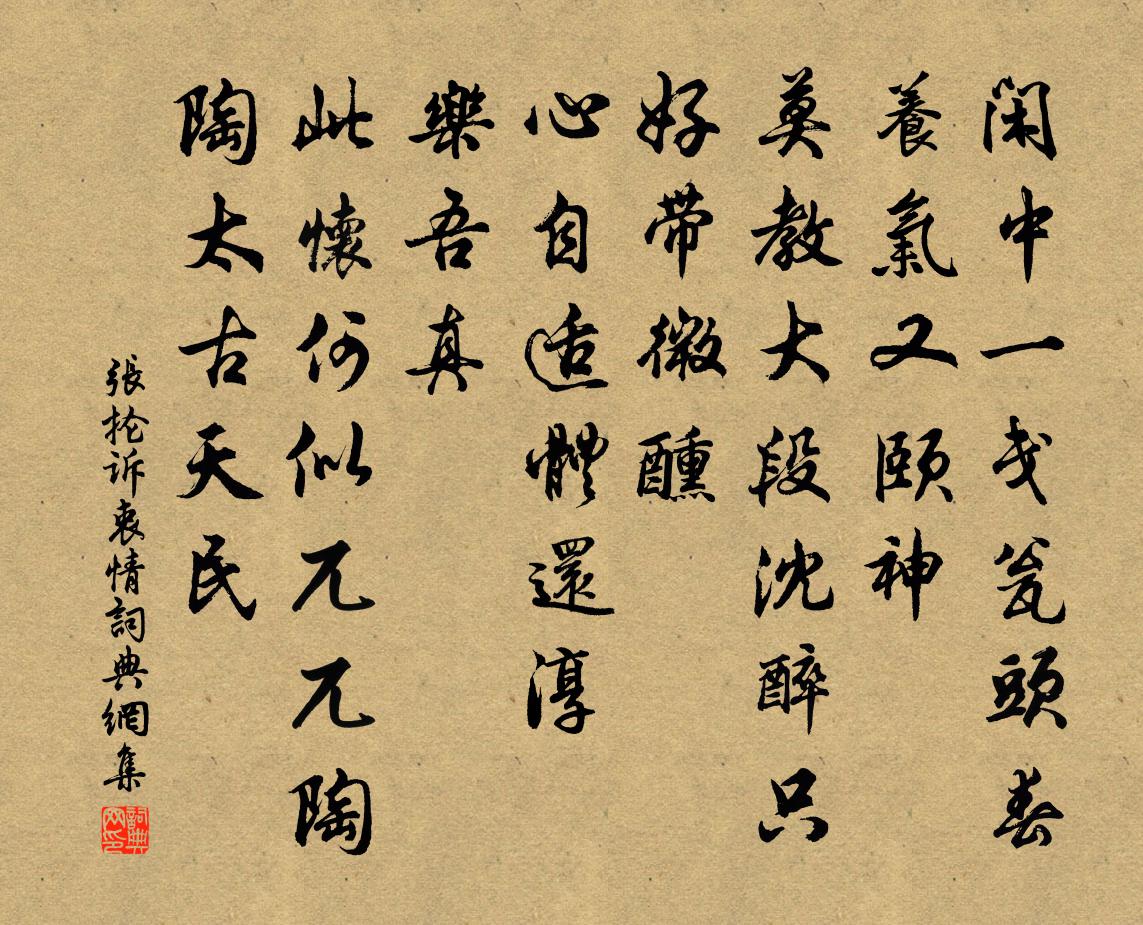 闲中一戋瓮頭春
養氣又頤神
莫教大段沈醉只
好带微醺
心自适體還淳
樂吾真
此懷何似兀兀陶
陶太古天民
張抡诉衷情詞典網集
詞典网印